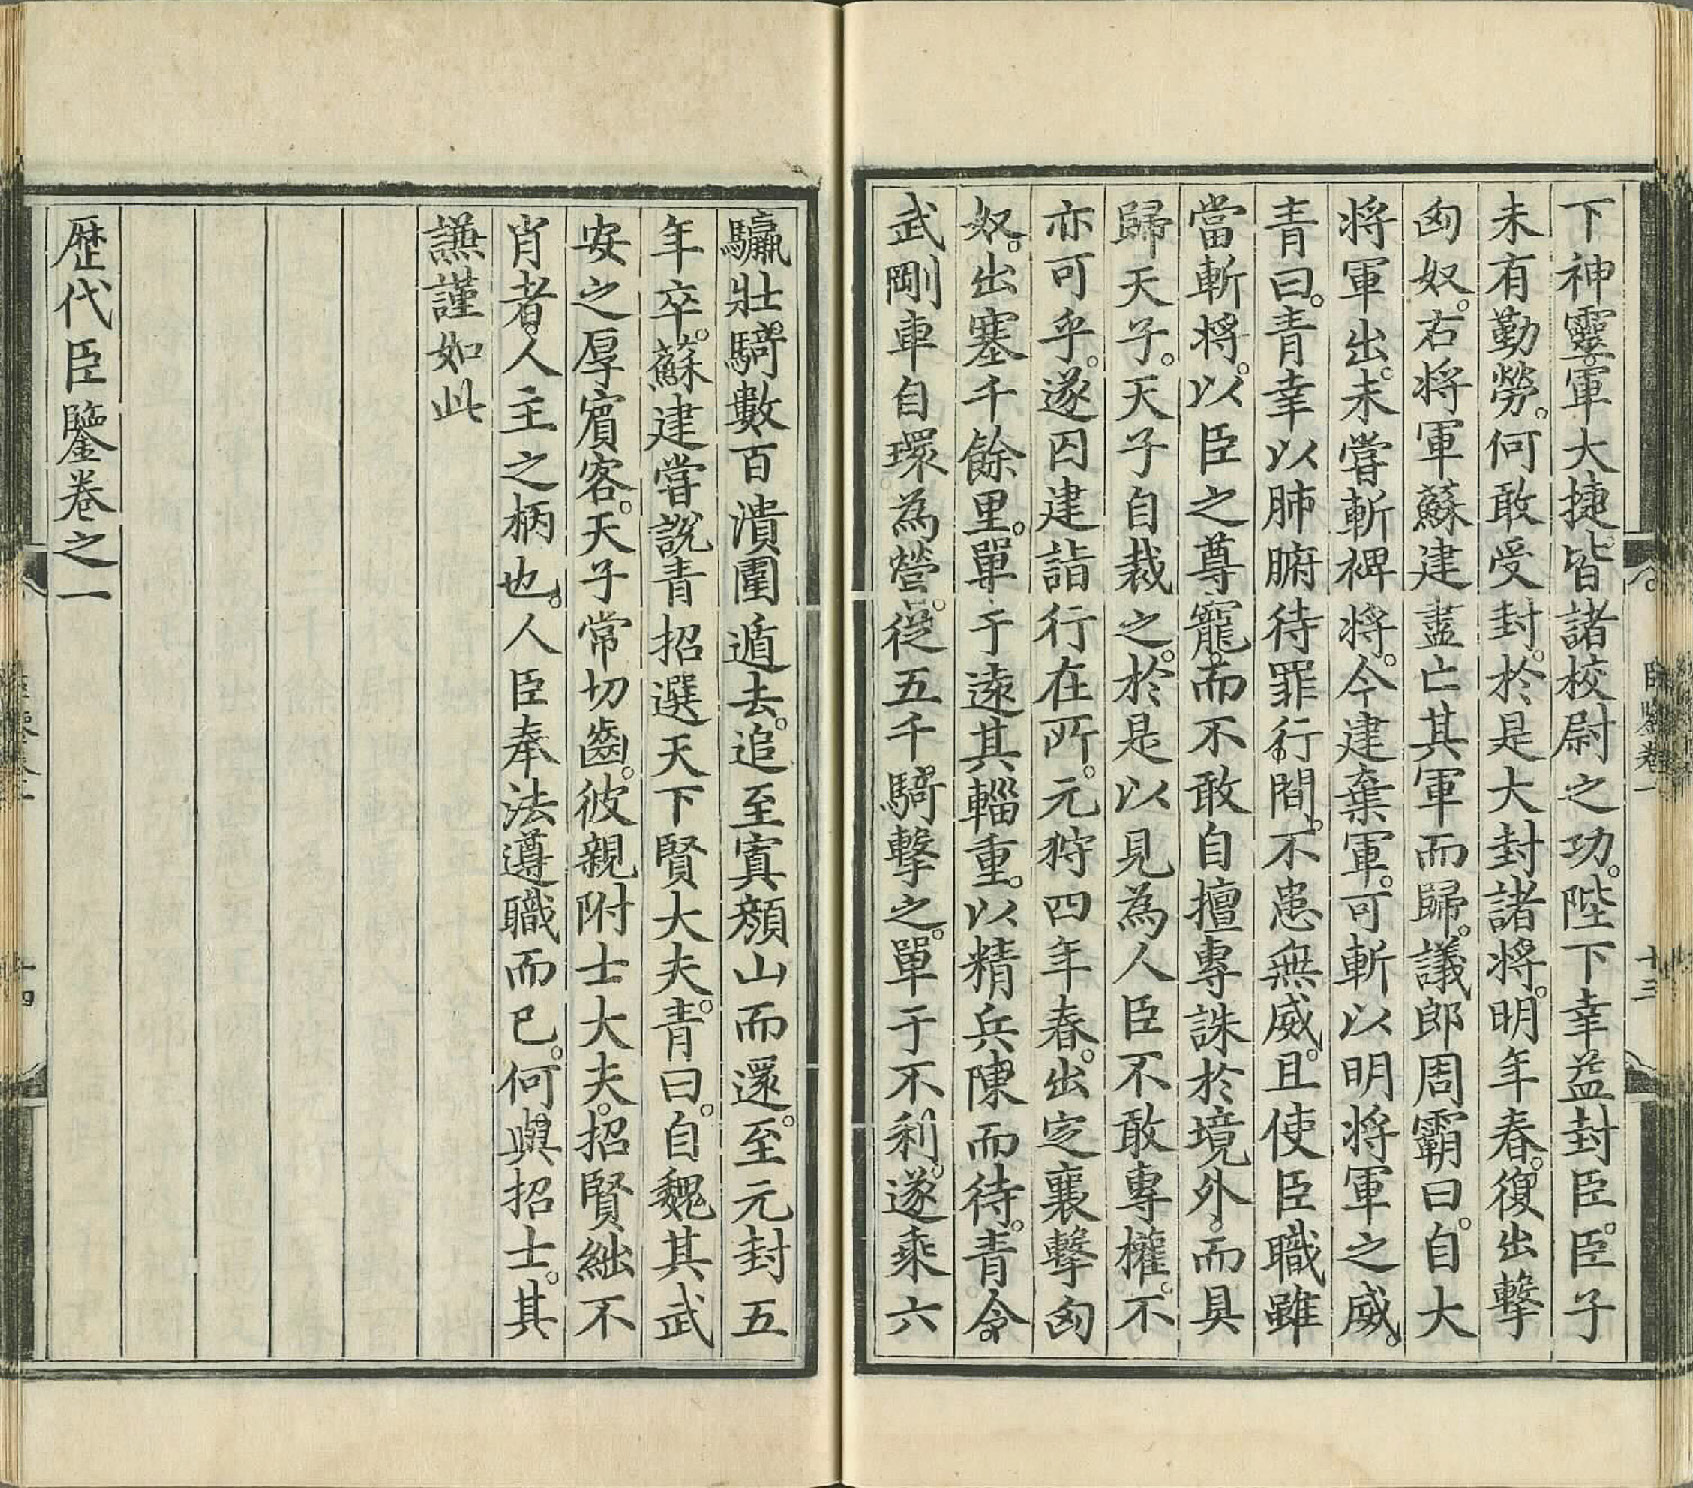 下神靈軍大捷皆諸校尉之功。陛下幸益封臣。臣子
未有勤勞。何敢受封。於是大封諸將。明年春。復出擊
匈奴。右將軍蘇建盡亡其軍而歸。議郎周霸曰。自大
將軍出。未嘗斬裨將。今建棄軍。可斬以明將軍之威。
青曰。青幸以肺腑待罪行間。不患無威。且使臣職雖
當斬將。以臣之尊寵。而不敢自擅專誅於境外。而具
歸天子。天子自裁之。於是以見為人臣不敢專權。不
亦可乎。遂囚建詣行在所。元狩四年春。出定襄擊匈
奴。出塞千餘里。單于遠其輜重。以精兵陳而待。青令
武剛車自環為營。從五千騎擊之。單于不利。遂乘六
驘壯騎數百潰圍遁去。追至寘顏山而還。至元封五
年卒。蘇建嘗說青招選天下賢大夫。青曰。自魏其武
安之厚賓客。天子常切齒。彼親附士大夫。招賢絀不
肖者。人主之柄也。人臣奉法遵職而已。何與招士。其
謙謹如此
歷代臣鑒卷之一
臣鑒卷一
十三
十四